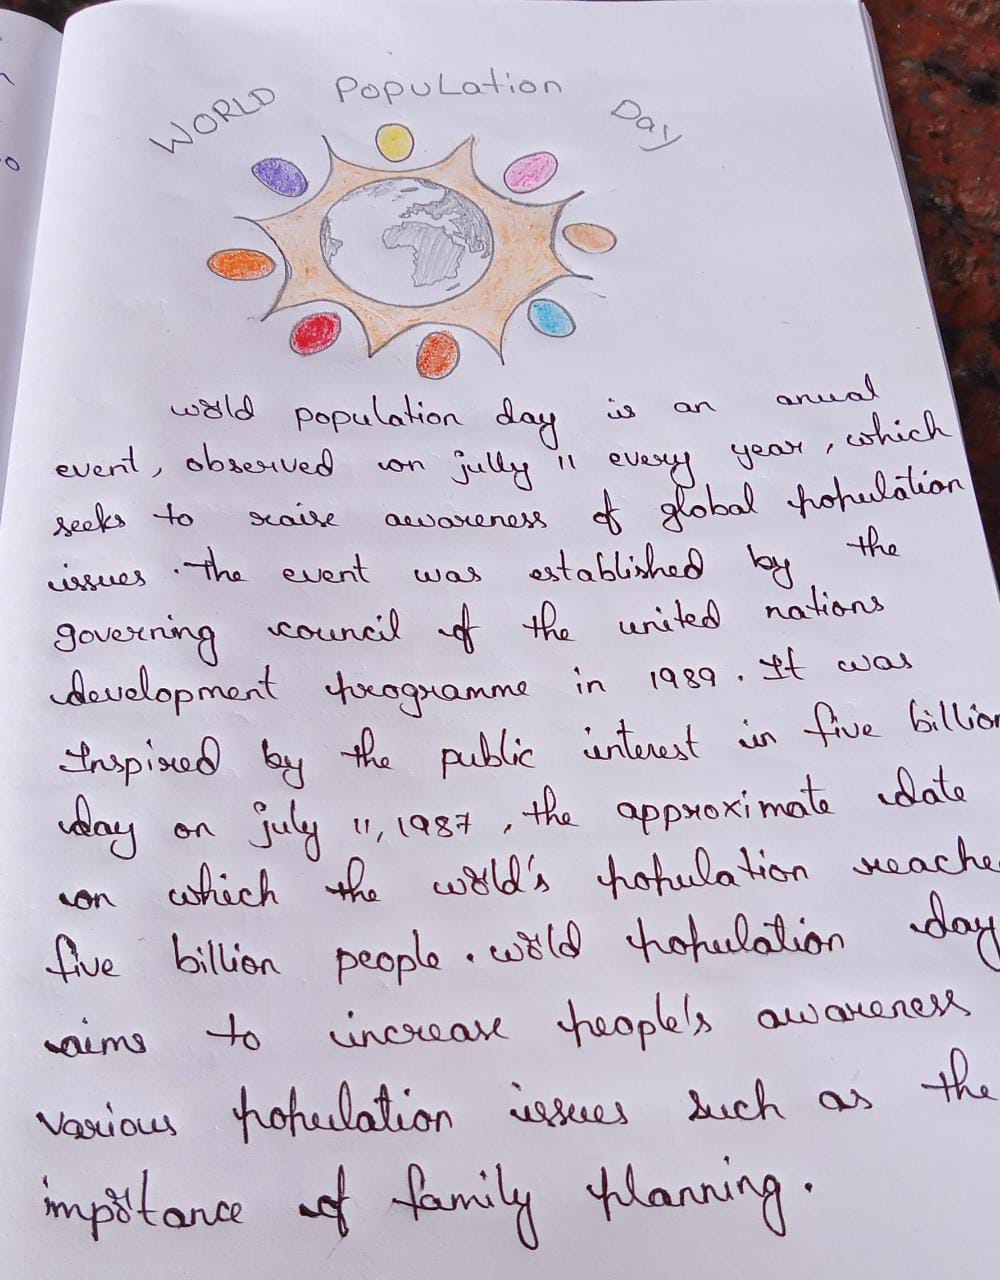 WORLD Population Day
world population day is an anual
event, observed on jully 11 every year, which
seeks to raise awareness of global population
issues. The event was established by the
governing council of the united nations
development programme in 1989. It was
Inspired by the public interest in five billion
day on july 11, 1987, the approximate date
on which the world's population reache
five billion people. world population day
aims to increase people's awareness
various population issues such as the
importance of family planning.